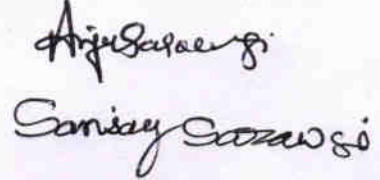 Anju Saraogi
Sanjay Sarawgi